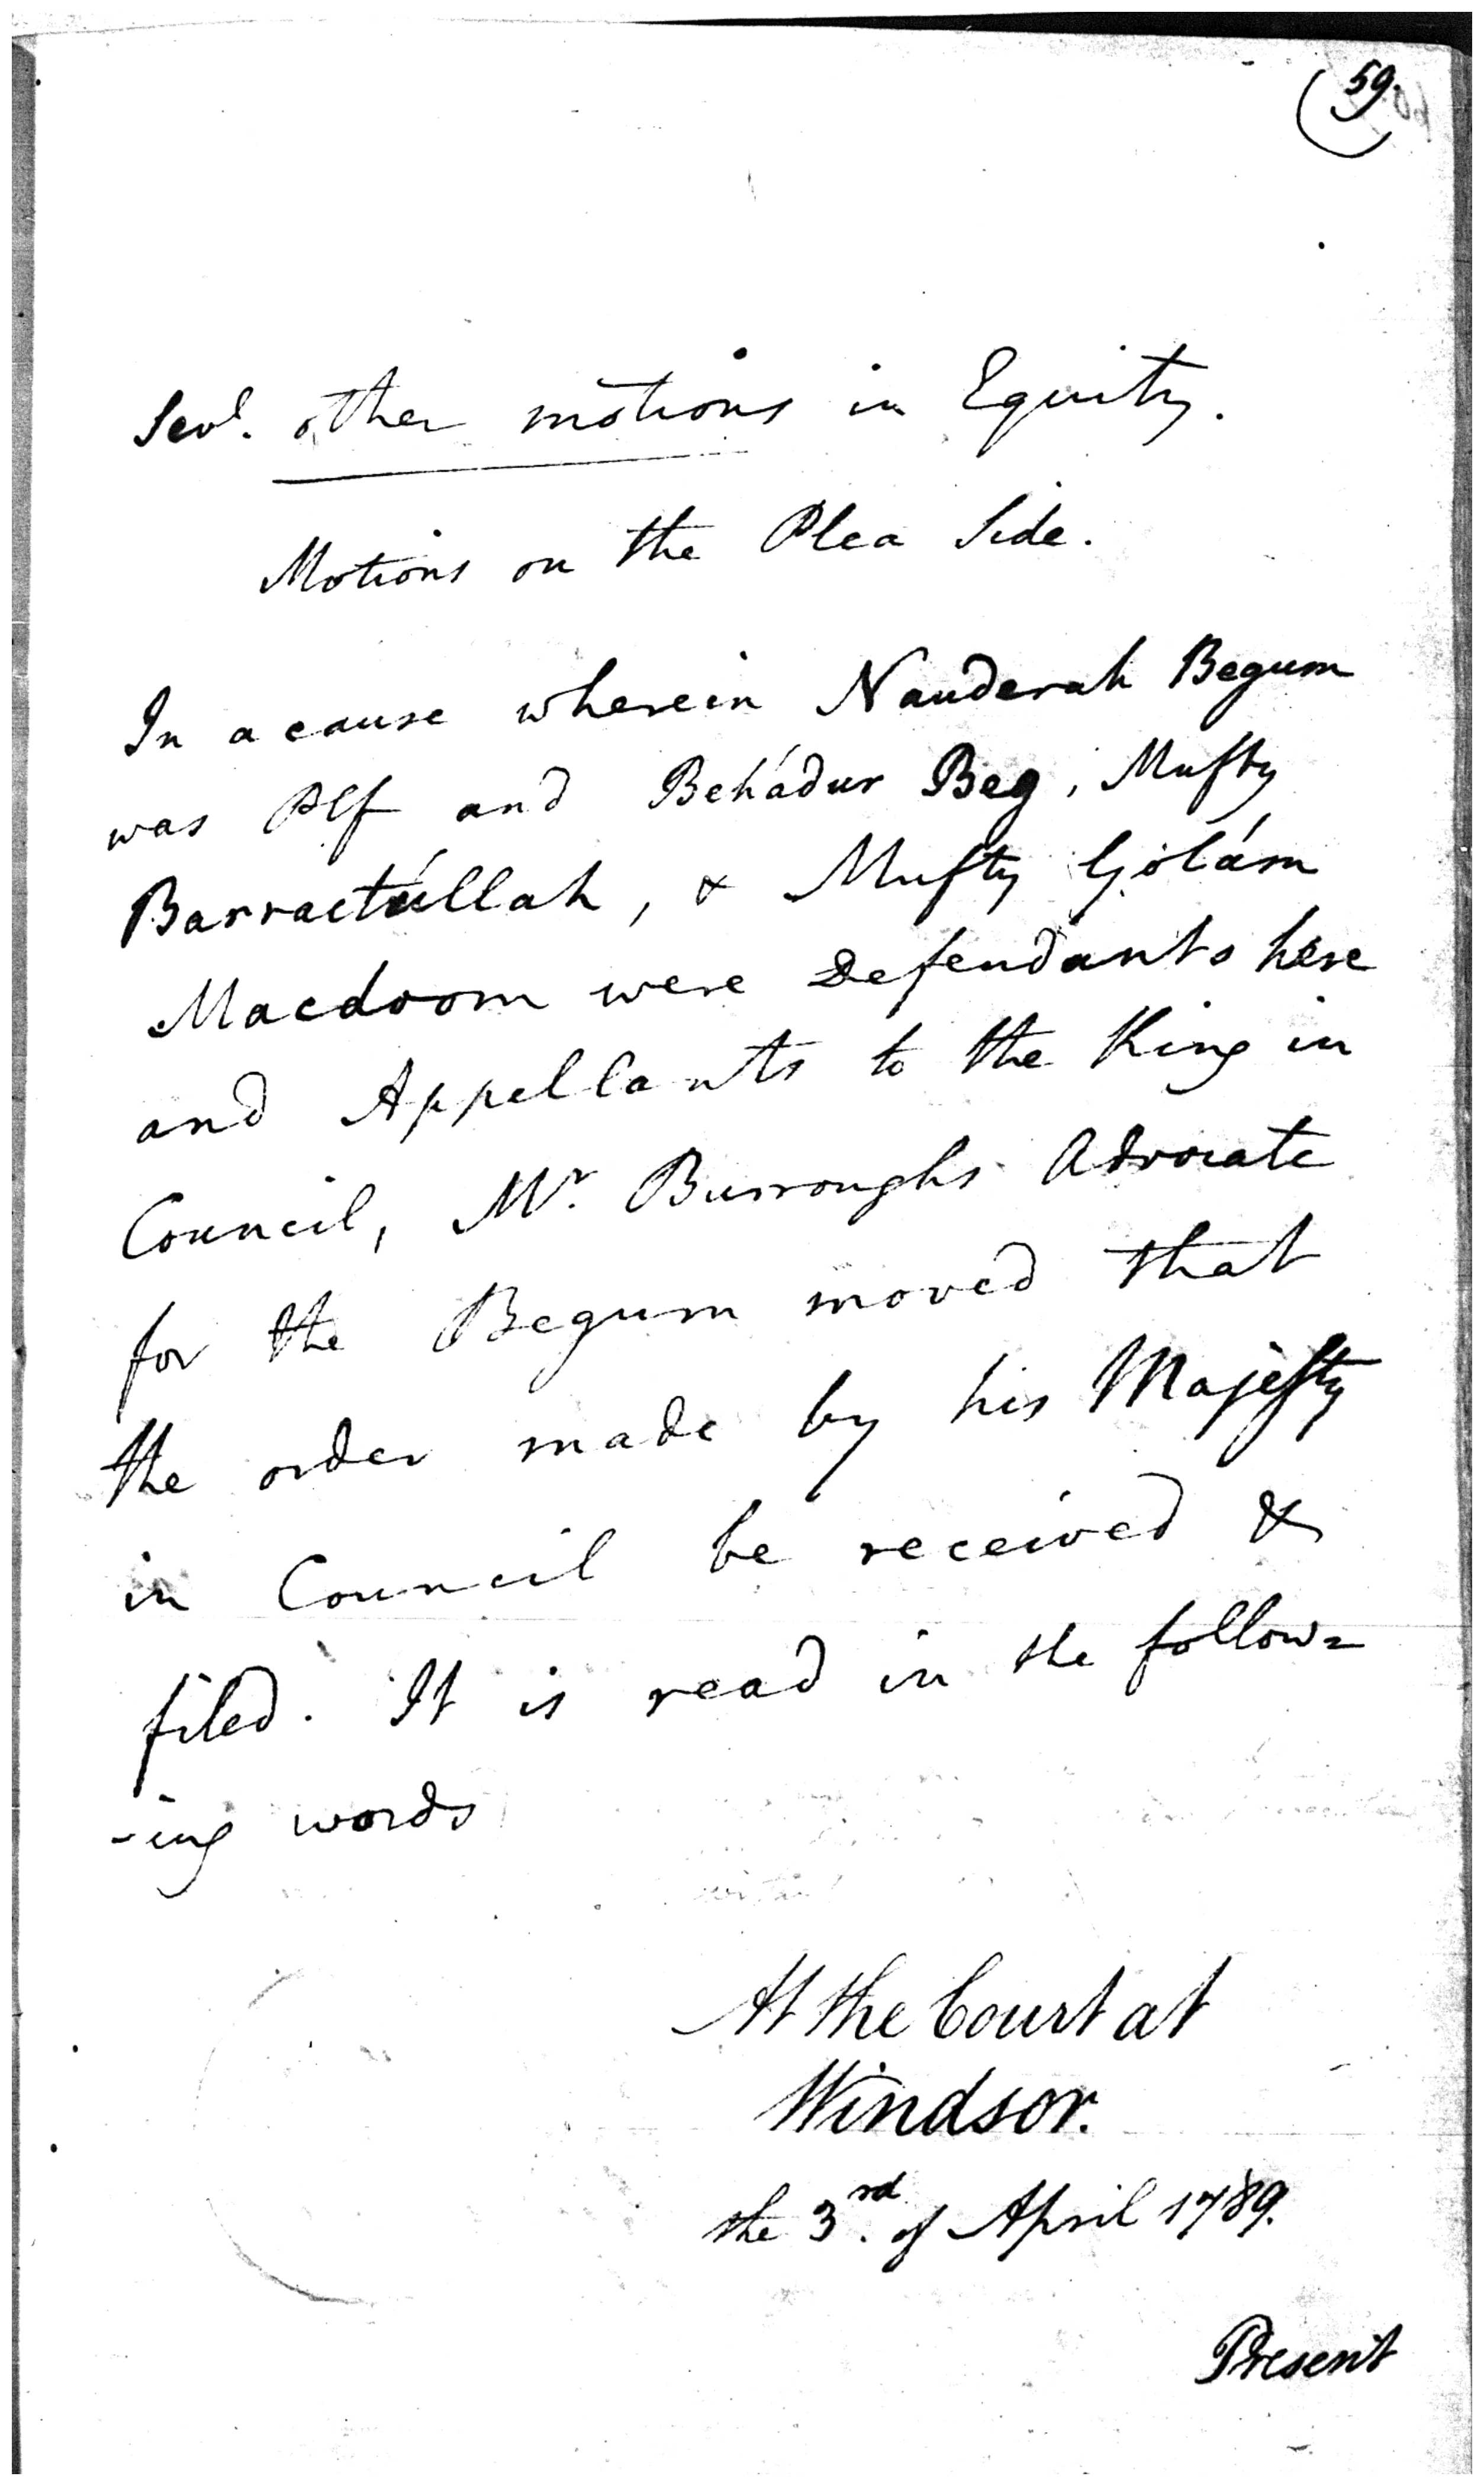 59.
Sevl. other motions in Equity.
Motions on the Plea Side.
In a cause wherein Nauderah Begum
was Plf and Behádur Beg, Mufty
Barractúllah, & Mufty Golám
Macdoom were Defendants here
and Appellants to the King in
Council, Mr. Burroughs Advocate
for the Begum moved that
the order made by his Majesty
in Council be received &
filed. It is read in the follow=
-ing words
At the Court at
Windsor.
the 3rd. of April 1789.
Present